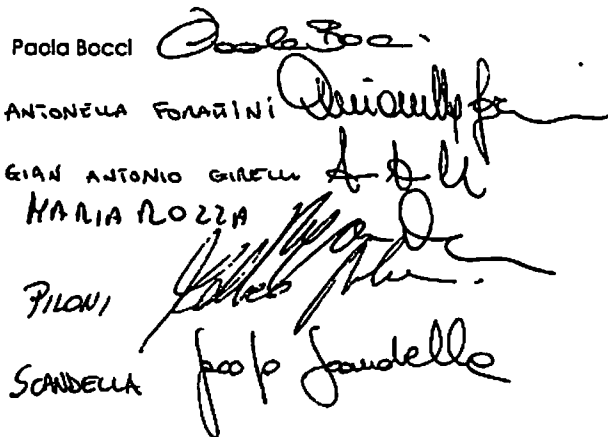 Paola Bocci Paola Bocci
ANTONELLA FORATTINI
GIAN ANTONIO GIRELLI
MARIA ROZZA
PILONI
SCANDELLA Jacopo Scandella